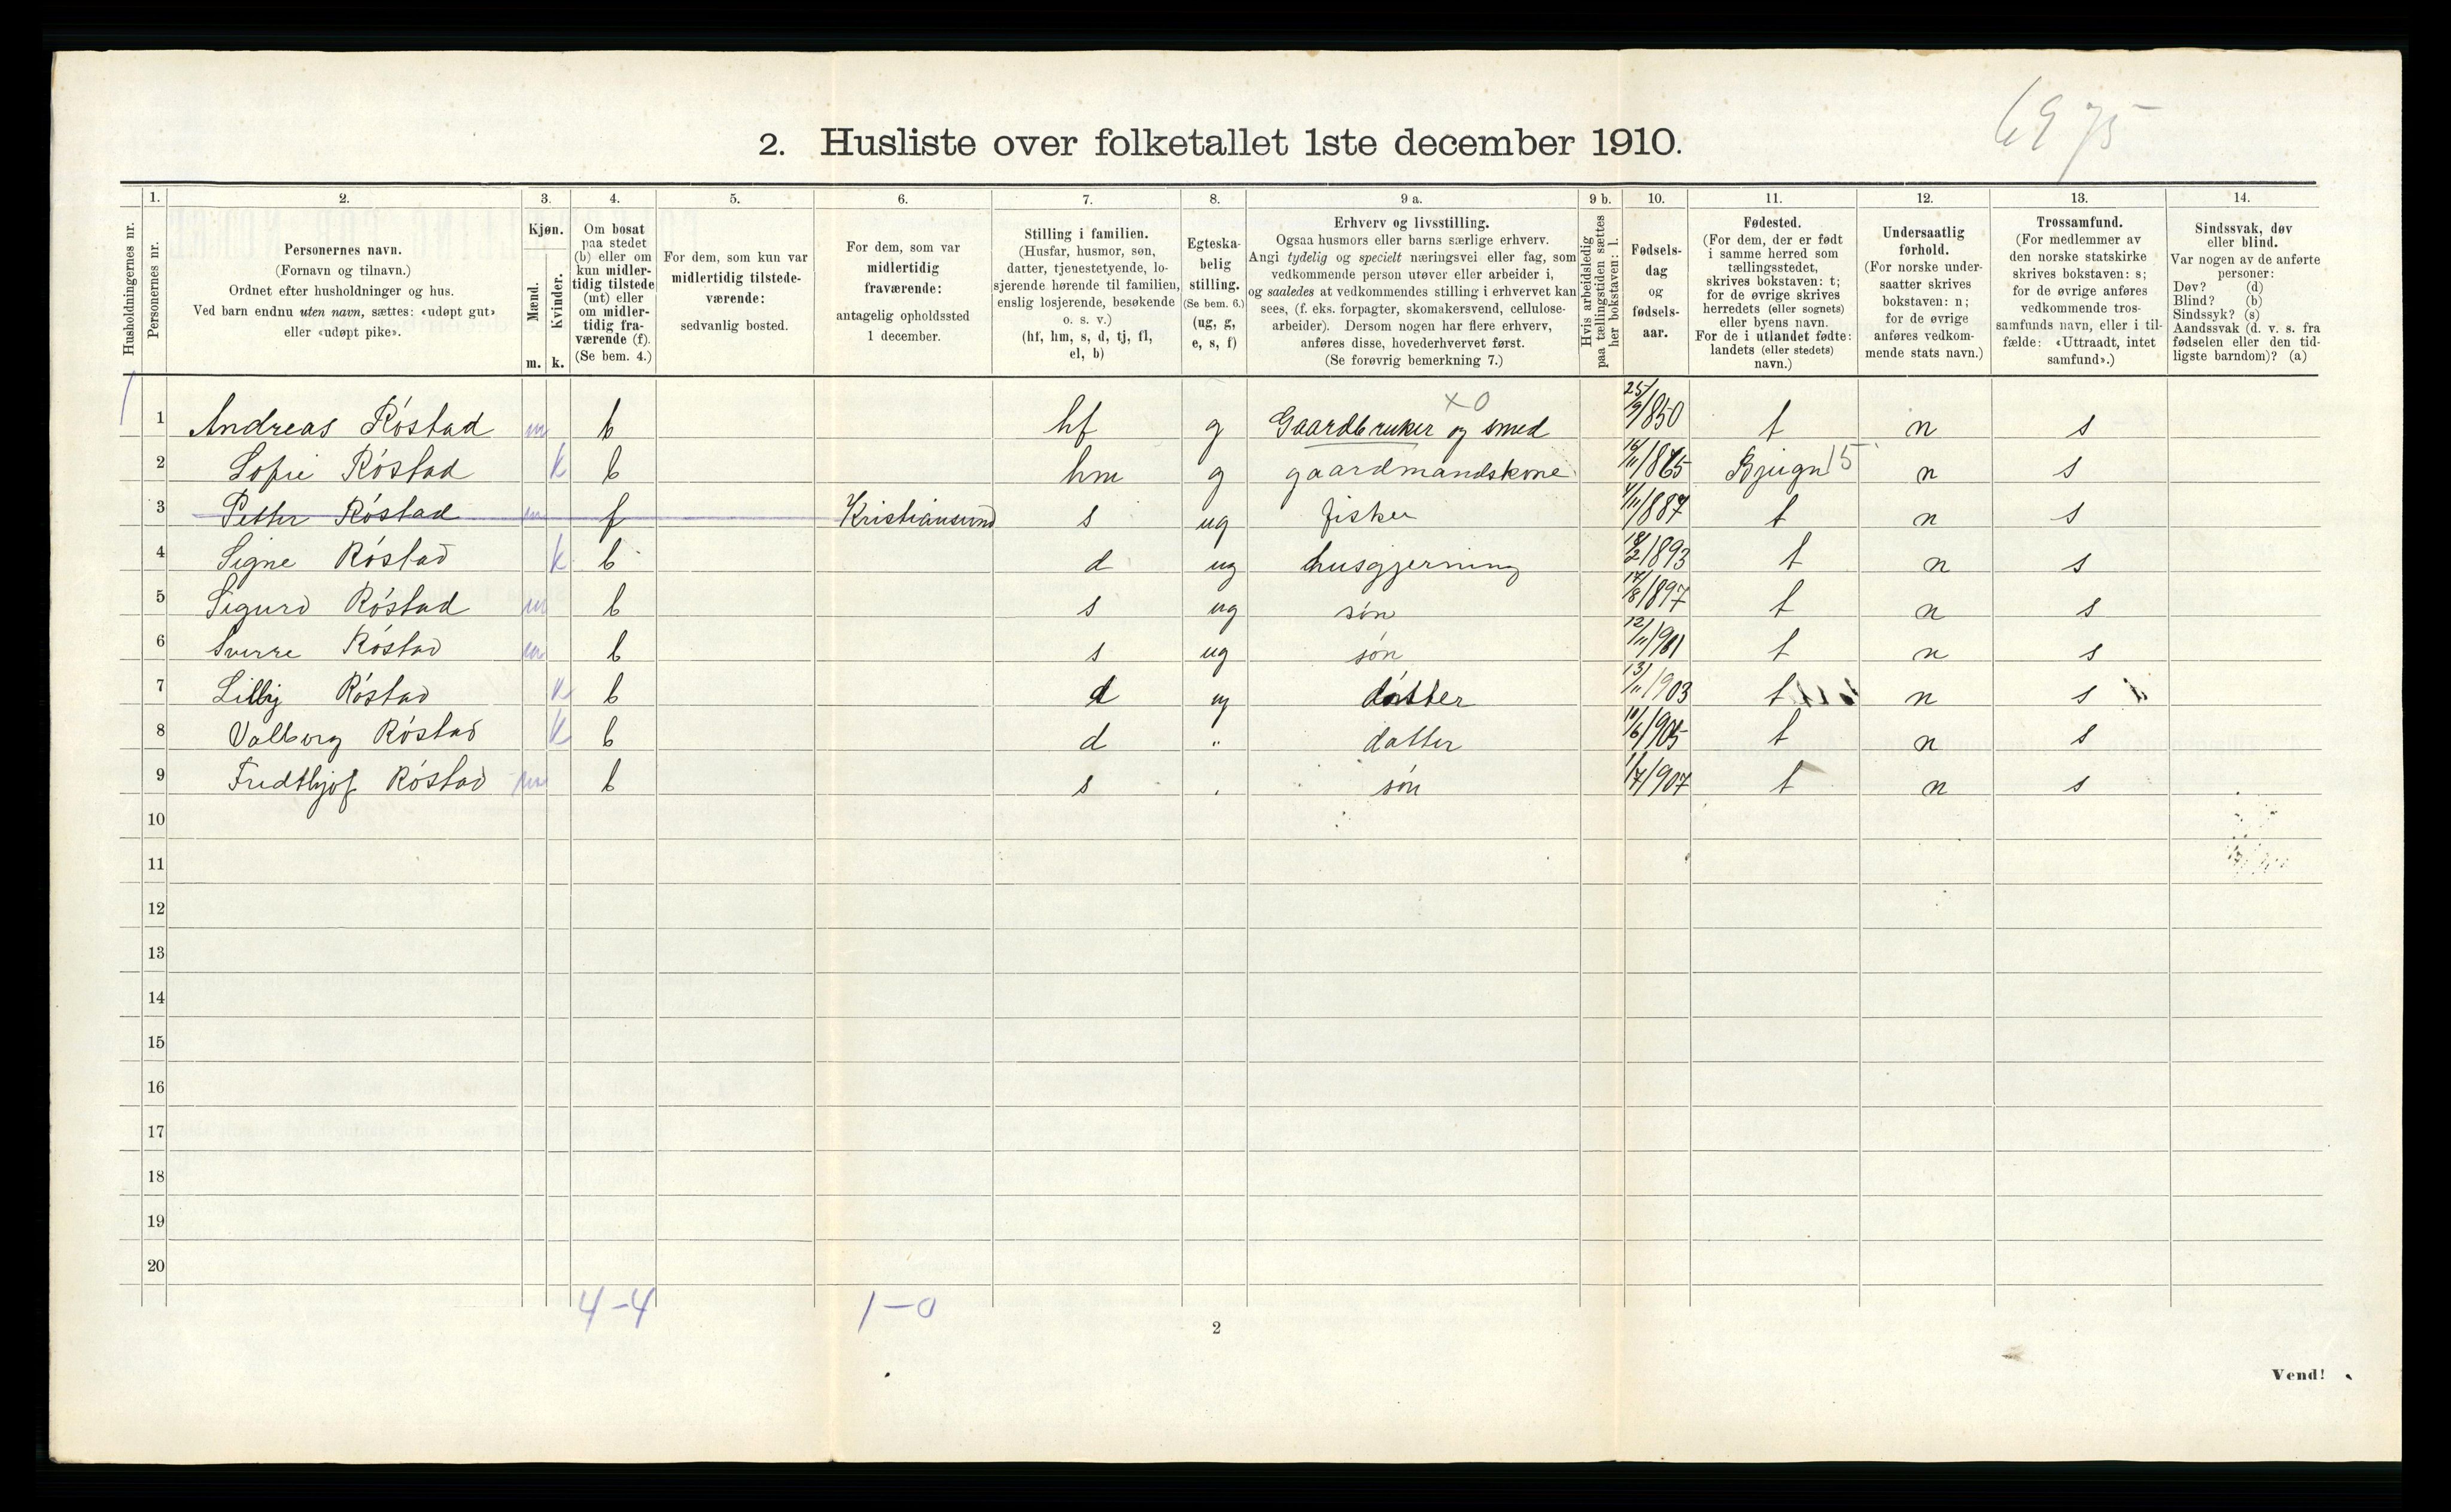 6975
2. Husliste over folketallet 1ste december 1910.
Husholdningernes nr.
1.
Personernes nr.
2.
Personernes navn.
(Fornavn og tilnavn.)
Ordnet efter husholdninger og hus.
Ved barn endnu uten navn, sættes: «udøpt gut»
eller «udøpt pike».
3.
Kjøn.
Mænd.
m.
Kvinder.
k.
4.
Om bosat
paa stedet
(b) eller om
kun midler-
tidig tilstede
(mt) eller
om midler-
tidig fra-
værende (f).
(Se bem. 4.)
5.
For dem, som kun var
midlertidig tilstede-
værende:
sedvanlig bosted.
6.
For dem, som var
midlertidig
fraværende:
antagelig opholdssted
1 december.
7.
Stilling i familien.
(Husfar, husmor, søn,
datter, tjenestetyende, lo-
sjerende hørende til familien,
enslig losjerende, besøkende
o. s. v.)
(hf, hm, s, d, tj, fl,
el, b)
8.
Egteska-
belig
stilling.
(Se bem. 6.)
(ug, g,
e, s, f)
9 a.
Erhverv og livsstilling.
Ogsaa husmors eller barns særlige erhverv.
Angi tydelig og specielt næringsvei eller fag, som
vedkommende person utøver eller arbeider i,
og saaledes at vedkommendes stilling i erhvervet kan
sees, (f. eks. forpagter, skomakersvend, cellulose-
arbeider). Dersom nogen har flere erhverv,
anføres disse, hovederhvervet først.
(Se forøvrig bemerkning 7.)
9 b.
Hvis arbeidsledig
paa tællingstiden sættes
her bokstaven: l.
10.
Fødsels-
dag
og
fødsels-
aar.
11.
Fødested.
(For dem, der er født
i samme herred som
tællingsstedet,
skrives bokstaven: t;
for de øvrige skrives
herredets (eller sognets)
eller byens navn.
For de i utlandet fødte:
landets (eller stedets)
navn.)
12.
Undersaatlig
forhold.
(For norske under-
saatter skrives
bokstaven: n;
for de øvrige
anføres vedkom-
mende stats navn.)
13.
Trossamfund.
(For medlemmer av
den norske statskirke
skrives bokstaven: s;
for de øvrige anføres
vedkommende tros-
samfunds navn, eller i til-
fælde: «Uttraadt, intet
samfund».)
14.
Sindssvak, døv
eller blind.
Var nogen av de anførte
personer:
Døv? (d)
Blind? (b)
Sindssyk? (s)
Aandssvak (d. v. s. fra
fødselen eller den tid-
ligste barndom)? (a)
1
x0
1 Andreas Róstad m b hf g Gaardbruker og smed 25/9/850 t n s
2 Sofie Róstad k b hm g gaardmandskone 16/11/865 Bjugn 15 n s
3 Petter Róstad m f Kristiansund s ug fisker 4/11/887 t n s
4 Signe Róstad k b d ug husgjerning 18/2/893 t n s
5 Sigurd Róstad m b s ug søn 17/8/897 t n s
6 Sverre Róstad m b s ug søn 12/11/901 t n s
7 Lilly Róstad k b d ug datter 13/11/903 t n s
8 Valborg Róstad k b d " datter 11/6/905 t n s
9 Fredthjof Róstad m b s . søn 1/7/907 t n s
10
11
12
13
14
15
16
17
18
19
20
4-4 1-0
2
Vend!